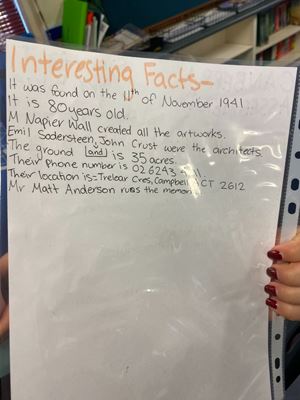 Interesting Facts-
It was found on the 11th of November 1941.
It is 80 years old.
M Napier Wall created all the artworks.
Emil Sodersteen, John Crust were the architects.
The ground land is 35 acres.
Their phone number is 02 6243
Their location is=Trelear Cres, Campbell ACT 2612
Mr Matt Anderson runs the